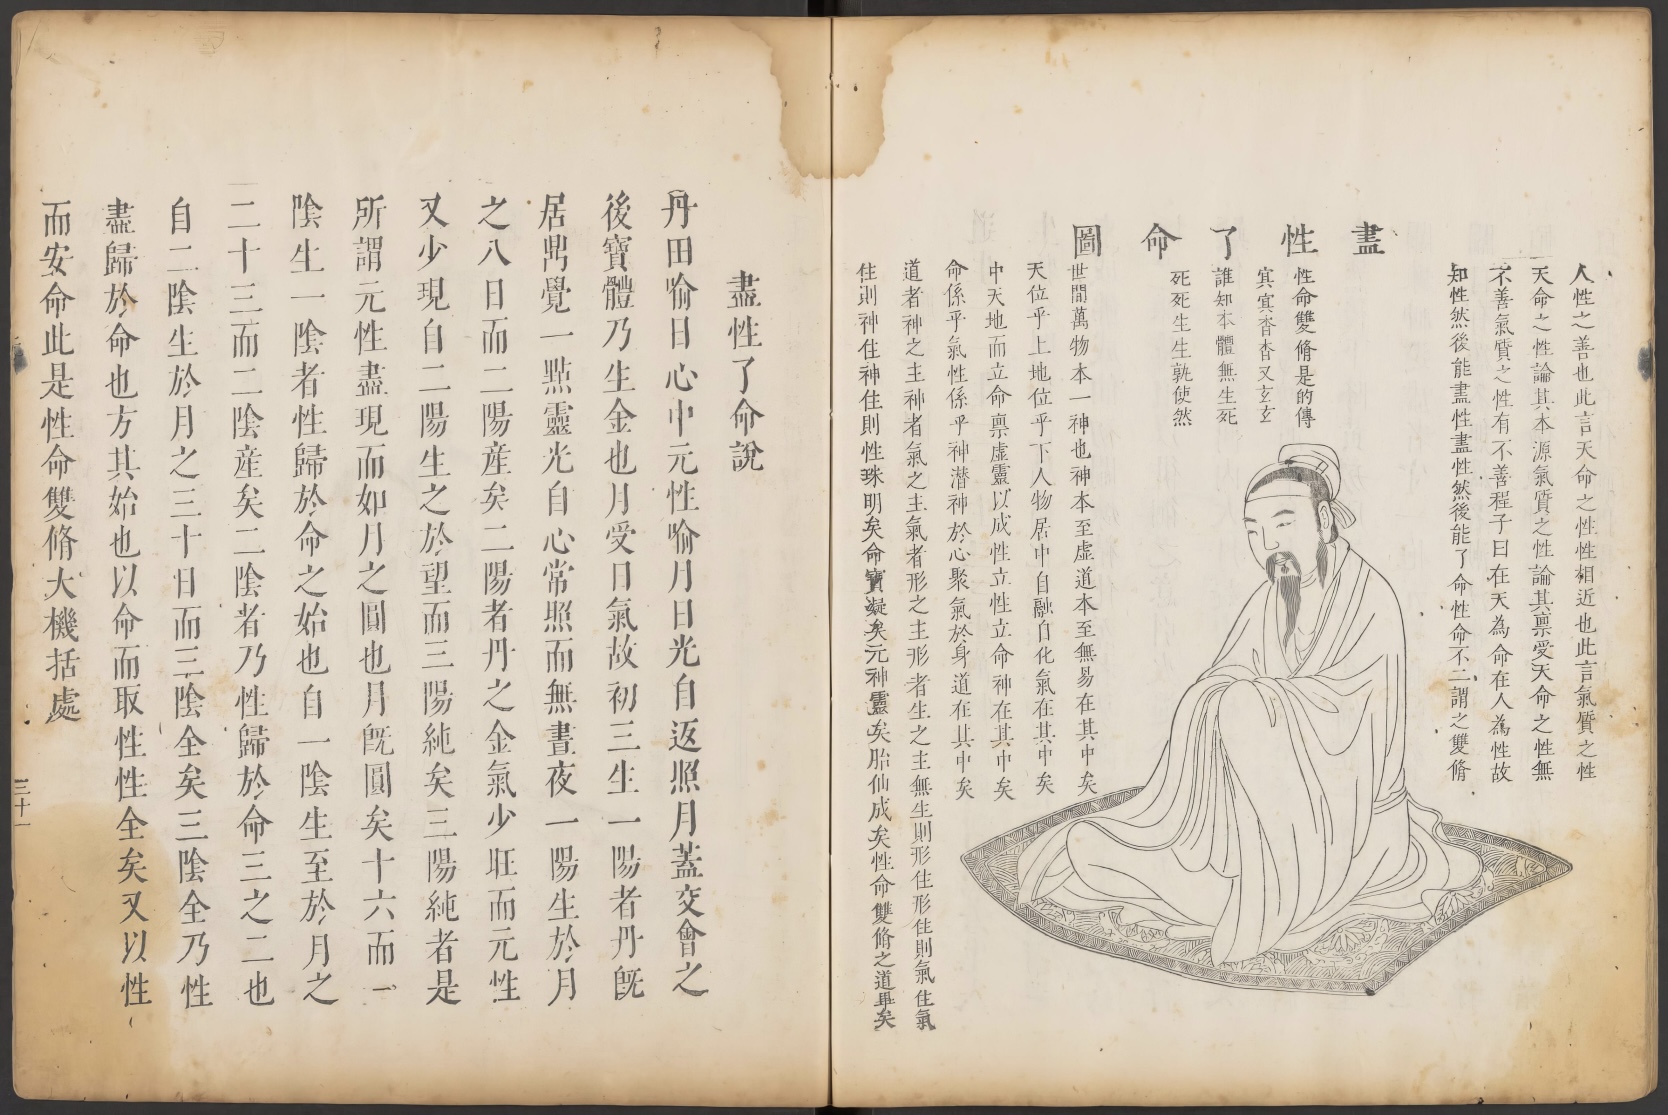 盡性了命圖
人性之善也此言天命之性性相近也此言氣質之性
天命之性論其本源氣質之性論其禀受天命之性無
不善氣質之性有不善程子曰在天為命在人為性故
知性然後能盡性盡性然後能了命性命不二謂之雙脩
性命雙脩是的傳
㝠㝠杳杳又玄玄
誰知本體無生死
死死生生孰使然
世間萬物本一神也神本至虛道本至無易在其中矣
天位乎上地位乎下人物居中自融自化氣在其中矣
中天地而立命禀虛靈以成性立性立命神在其中矣
命係乎氣性係乎神潛神於心聚氣於身道在其中矣
道者神之主神者氣之主氣者形之主形者生之主無生則形住形住則氣住氣
住則神住神住則性珠明矣命寶凝矣元神靈矣胎仙成矣性命雙脩之道畢矣
盡性了命說
丹田喻日心中元性喻月日光自返照月蓋交會之
後寶體乃生金也月受日氣故初三生一陽者丹旣
居鼎覺一點靈光自心常照而無晝夜一陽生於月
之八日而二陽産矣二陽者丹之金氣少旺而元性
又少現自二陽生之於望而三陽純矣三陽純者是
所謂元性盡現而如月之圓也月旣圓矣十六而一
陰生一陰者性歸於命之始也自一陰生至於月之
二十三而二陰産矣二陰者乃性歸於命三之二也
自二陰生於月之三十日而三陰全矣三陰全乃性
盡歸於命也方其始也以命而取性性全矣又以性
而安命此是性命雙脩大機括處
三十一